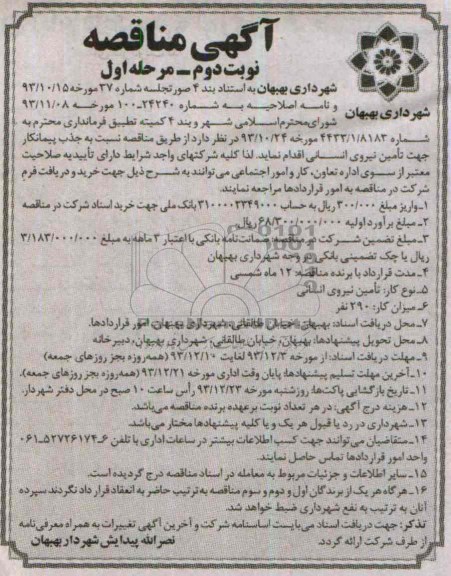 آگهی مناقصه
نوبت دوم ـ مرحله اول
شهرداری بهبهان
شهرداری بهبهان به استناد بند ۴ صورتجلسه شماره ۳۷ مورخه ۹۳/۱۰/۱۵
و نامه اصلاحیه به شماره ۲۴۲۴۰-۱۰۰ مورخه ۹۳/۱۱/۰۸
شورای محترم اسلامی شهر و بند ۴ کمیته تطبیق فرمانداری محترم به
شماره ۴۴۳۳/۱/۸۱۸۳ مورخه ۹۳/۱۰/۲۴ در نظر دارد از طریق مناقصه نسبت به جذب پیمانکار
جهت تأمین نیروی انسانی اقدام نماید. لذا کلیه شرکتهای واجد شرایط دارای تأییدیه صلاحیت
معتبر از سوی اداره تعاون، کار و امور اجتماعی می توانند به شرح ذیل جهت خرید و دریافت فرم
شرکت در مناقصه به امور قراردادها مراجعه نمایند.
۱ـ واریز مبلغ ۳۰۰/۰۰۰ ریال به حساب ۳۱۰۰۰۰۲۳۴۹۰۰۰ بانک ملی جهت خرید اسناد شرکت در مناقصه
۲ـ مبلغ برآورد اولیه ۶۸/۳۰۰/۰۰۰/۰۰۰ ریال
۳ـ مبلغ تضمین شرکت در مناقصه: ضمانت نامه بانکی با اعتبار ۳ ماهه به مبلغ ۳/۱۸۳/۰۰۰/۰۰۰
ریال یا چک تضمینی بانکی در وجه شهرداری بهبهان
۴ـ مدت قرارداد با برنده مناقصه: ۱۲ ماه شمسی
۵ـ نوع کار: تأمین نیروی انسانی
۶ـ میزان کار: ۲۹۰ نفر
۷ـ محل دریافت اسناد: بهبهان، خیابان طالقانی، شهرداری بهبهان، امور قراردادها.
۸ـ محل تحویل پیشنهادها: بهبهان، خیابان طالقانی، شهرداری بهبهان، دبیرخانه
۹ـ مهلت دریافت اسناد: از مورخه ۹۳/۱۲/۳ لغایت ۹۳/۱۲/۱۰ (همه روزه بجز روزهای جمعه)
۱۰ـ آخرین مهلت تسلیم پیشنهادها: پایان وقت اداری مورخه ۹۳/۱۲/۲۱ (همه روزه بجز روزهای جمعه).
۱۱ـ تاریخ بازگشایی پاکت‌ها: روز شنبه مورخه ۹۳/۱۲/۲۳ رأس ساعت ۱۰ صبح در محل دفتر شهردار.
۱۲ـ هزینه درج آگهی: در هر تعداد نوبت برعهده برنده مناقصه می‌باشد.
۱۳ـ شهرداری در رد یا قبول هر یک و یا کلیه پیشنهادها مختار می‌باشد.
۱۴ـ متقاضیان می‌توانند جهت کسب اطلاعات بیشتر در ساعات اداری با تلفن ۶-۵۲۷۲۶۱۷۴-۰۶۱
واحد امور قراردادها تماس حاصل نمایند.
۱۵ـ سایر اطلاعات و جزئیات مربوط به معامله در اسناد مناقصه درج گردیده است.
۱۶ـ هرگاه هر یک از برندگان اول و دوم و سوم مناقصه به ترتیب حاضر به انعقاد قرارداد نگردند، سپرده
آنان به ترتیب به نفع شهرداری ضبط خواهد شد.
تذکر: جهت دریافت اسناد می‌بایست اساسنامه شرکت و آخرین آگهی تغییرات به همراه معرفی‌نامه
از طرف شرکت ارائه گردد.
نصرالله پیدایش شهردار بهبهان